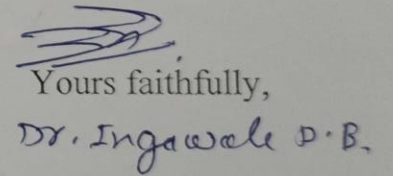 Yours faithfully,
Dr. Ingawale D.B.